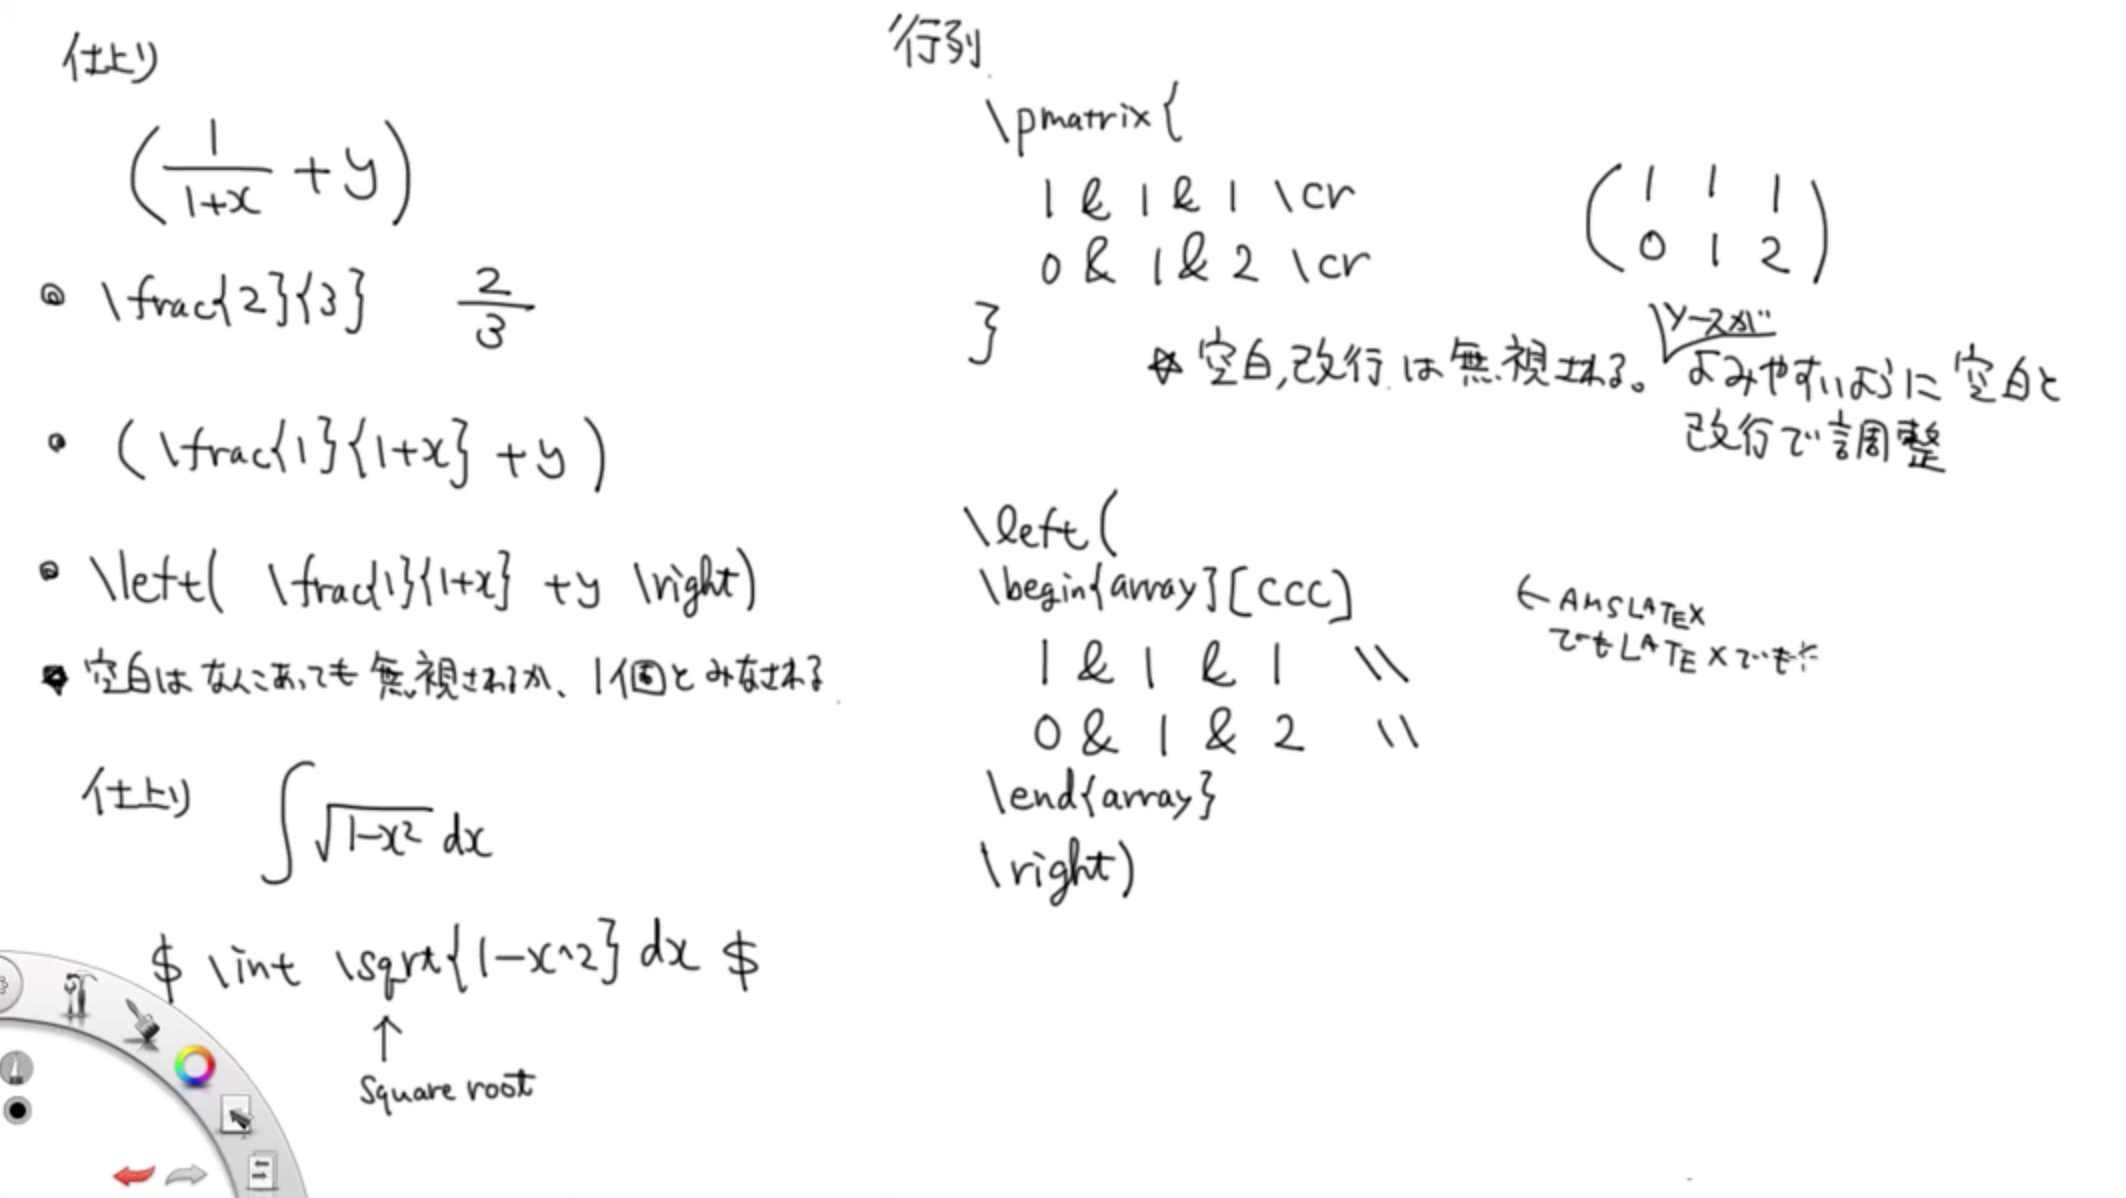 仕上り
(1/(1+x) + y)
\frac{2}{3} 2/3
(\frac{1}{1+x} + y)
\left( \frac{1}{1+x} + y \right)
空白はなんこあっても無視されるか、1個とみなされる
仕上り ∫√(1-x²) dx
$ \int \sqrt{1-x^2} dx $
↑
square root
行列
\pmatrix{
1 & 1 & 1 \cr
0 & 1 & 2 \cr
}
( 1 1 1
0 1 2 )
☆ 空白,改行は無視される。
ソースが
よみやすいように空白と
改行で調整
\left(
\begin{array}[ccc]
1 & 1 & 1 \\
0 & 1 & 2 \\
\end{array}
\right)
← AMSLATEX
でもLATEXでも